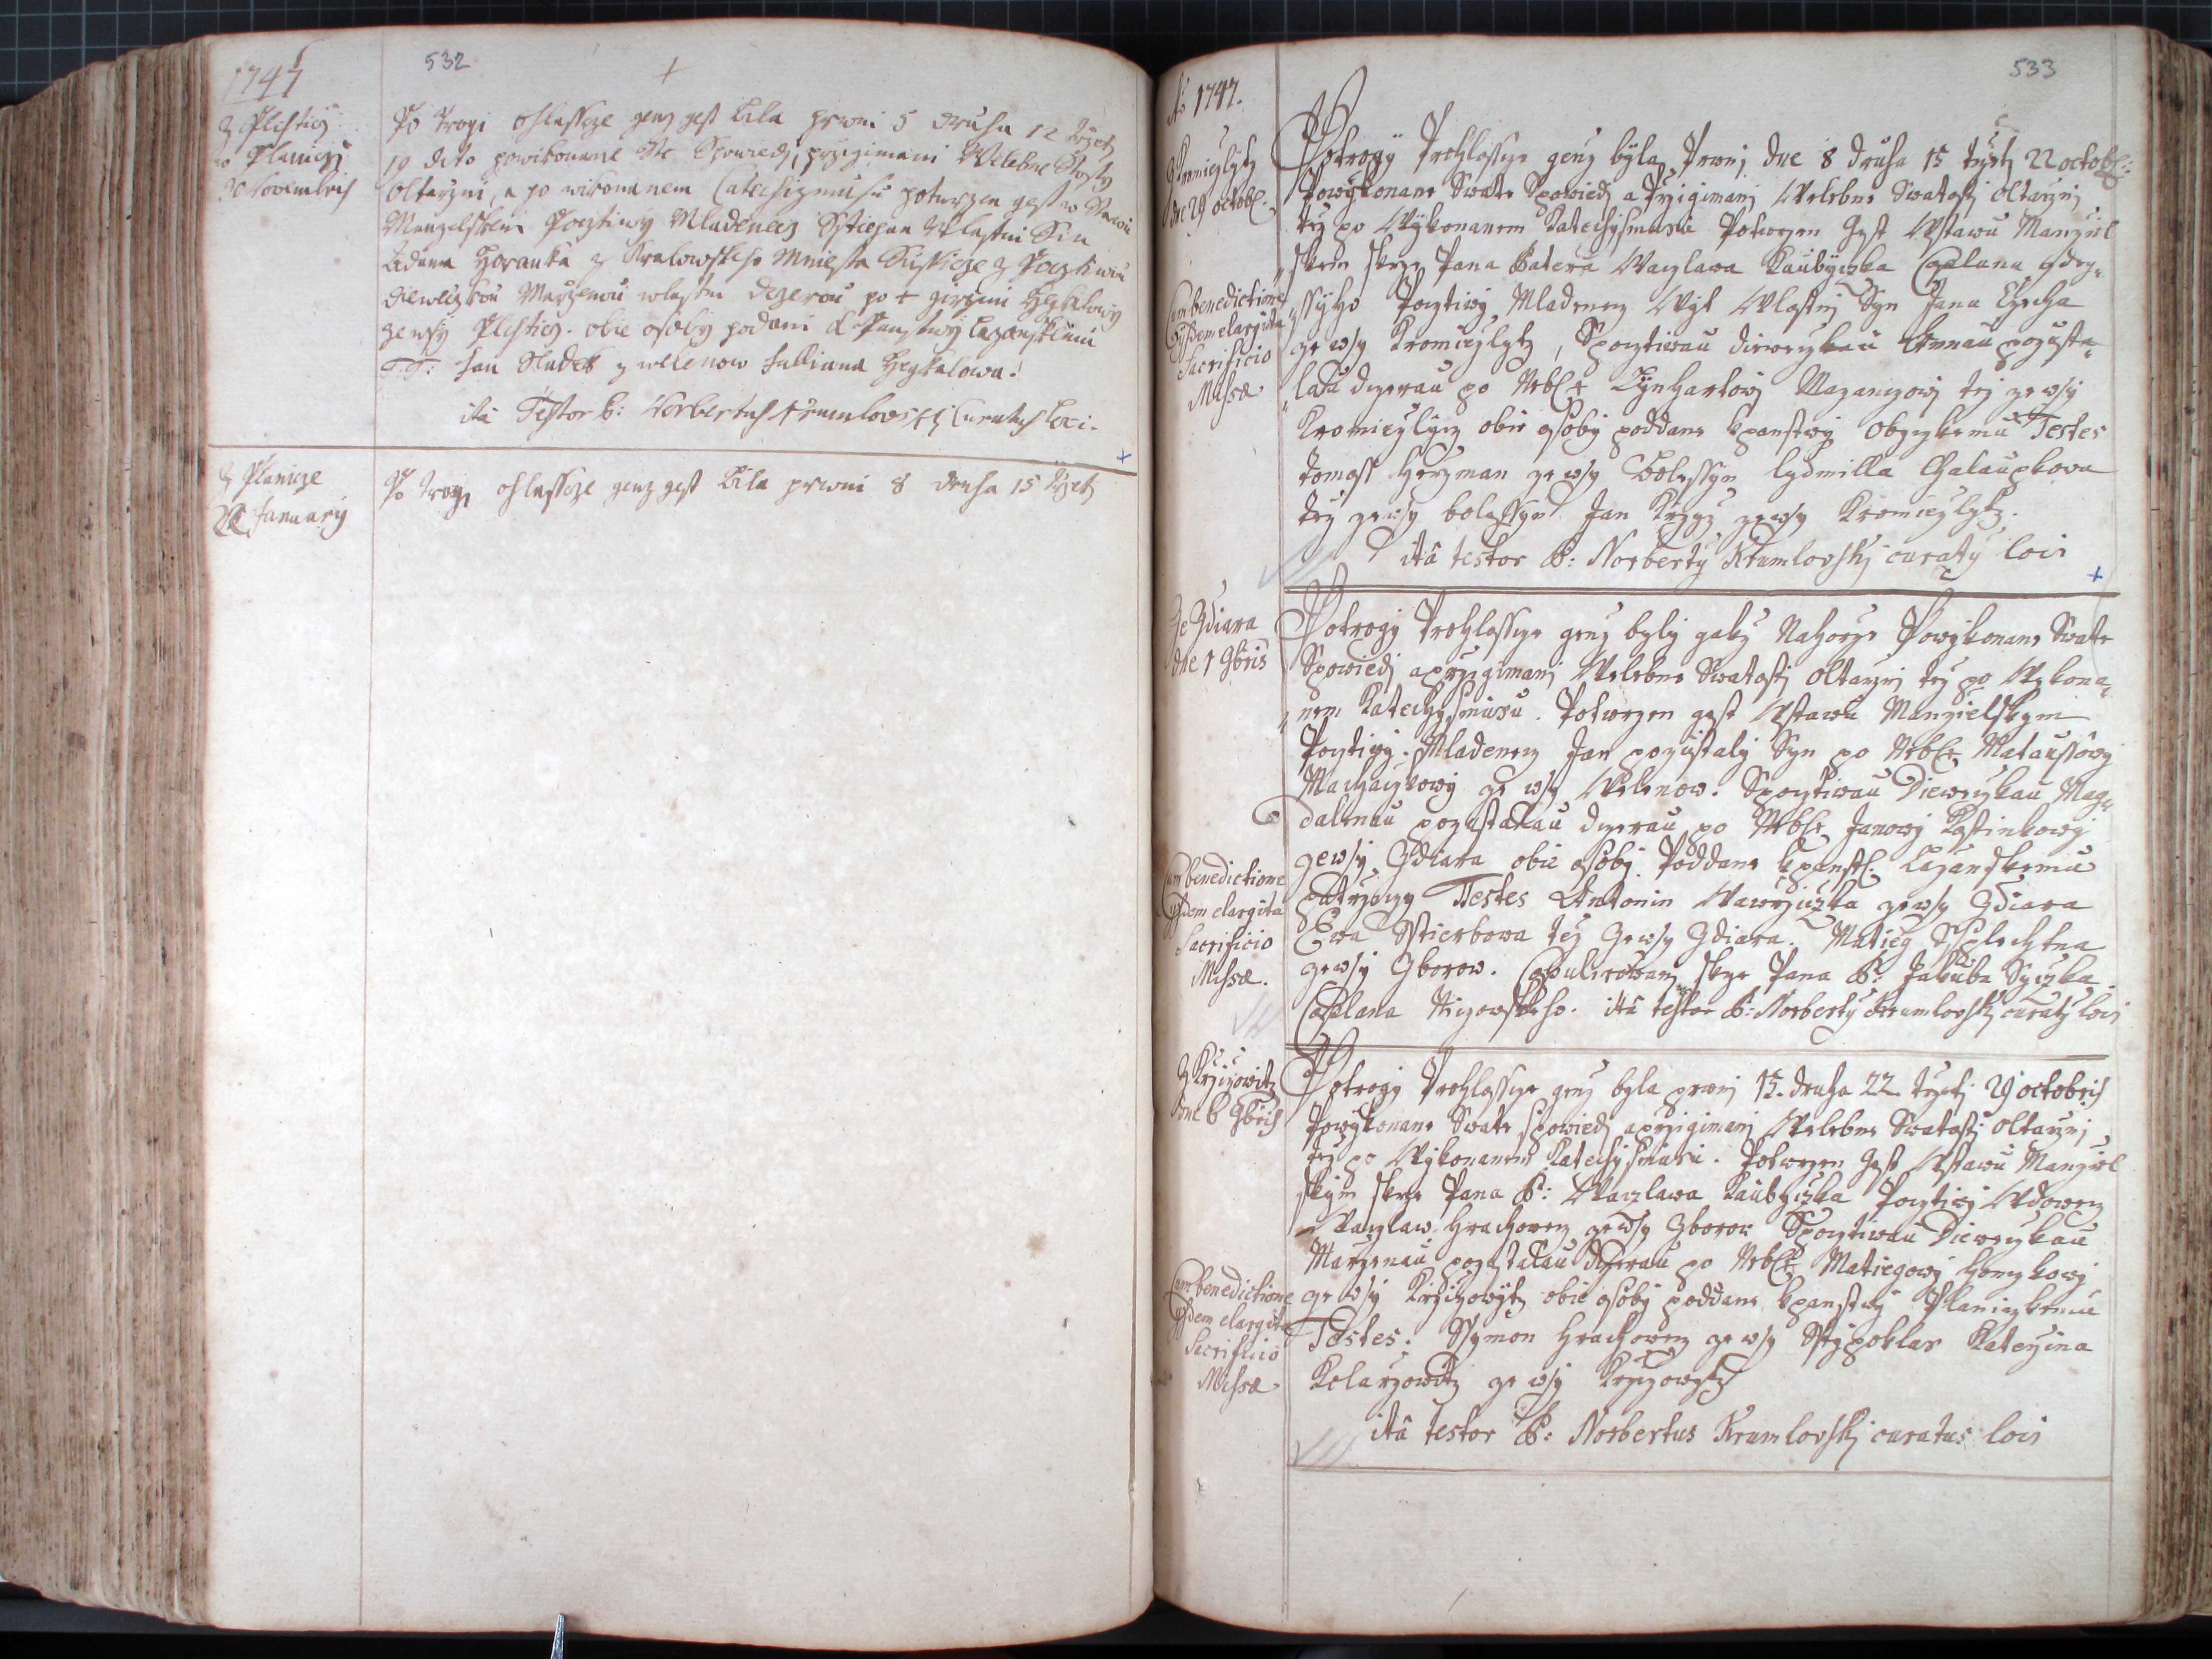 1747
532
Z Plisticz
w Planiczi
20 Novembris
Po trogi ohlassce genz gest bila prwni 5 druha 12 trzeti
19 dito powikonane S. Spowiedi, przigimani Welebne Swatosti
Oltarzni, a po wikonanem Catechizmusu potwrzen gest w Stawu
Manzelskem Pocztiwy Mladenecz Sstiepan Wlastni Sin
Adama Horanka z Kralowskeho Miesta Sussicze z Pocztiwau
Diewczkau Marzenau wlastni dczerau po + Girzim Hegkalowy
ze wsy Plisticz. obie osoby podani k Panstwj
T.T: Jan Sladek z Welenow Julliana Hegkalowa.
ita Testor P: Norbertus Krumlovskj Curatus Loci.
Z Planicze
22 January
Po trogi ohlassce genz gest bila prwni 8 druha 15 trzeti
533
Ao 1747.
Z Kromiezlytz
Dne 29 octob:
Cum benedictione
Eijsdem elargita
Sacrificio
Missæ
Potrogy Prohlassce genz byla Prwnj dne 8 druha 15 trzetj 22 octob:
Powykonane Swate Spowiedj a Przigimanj Welebne Swatostj oltarznj
tez po Wykonanem Katechysmusu Potwrzen Gest Wstawu Manziel
skem skrze Pana Patera Waczlawa Kaubyczka Caplana zdeg„
„ssyho Pocztiwy Mladenecz Wyt Wlastnj Syn Jana
ze wsy Kromiezlytz, Spocztiwau diewczkau Annau pozusta„
„lau dczerau po Nebl + Lynhartowj tez ze wsy
Kromiezlycz obie osoby poddane kpanstwj Obyczkemu Testes
Tomass Herzman ze wsy Bolessyn lydmilla Chalaupkowa
tez ze wsy bolessyn Jan Krzyz ze wsy Kromiezlytz.
ita testor P: Norberty Krumlovskj curaty loci
Ze Zdiara
dne 7 9bris
Cum benedictione
Eijsdem elargita
Sacrificio
Missæ.
Potrogy Prohlassce genz byly gakz Nahorze Powykonane Swate
Spowiedj a przigimanj Welebne Swatostj oltarznj tez po Wykona„
„nem Katechysmusu. Potwrzen gest Wstawu Manzielskym
Pocztiwy Mladenecz Jan pozustaly Syn po Nebl + Mataussowj
Machaczkowy ze wsy Welenow. Spocztiwau Diewczkau Mag„
dalenau pozustalau dczerau po Nebl + Janowj Kostinkowj
zewsy Zdiara obie osoby Poddane kpanst:
patrziczy Testes Antonin Wawrziczka ze wsy Zdiara
Ewa Sstierbowa tez Zewsy Zdiara. Matieg Ssplechtna
zewsy Zborow. Copulirowanj skrze Pana P: Jakuba Syczka
Caplana Niczowskeho. ita testor P: Norberty Krumlovskj curaty loci
Z Krzizowitz
Dne 6 9bris
Cum benedictione
Eijsdem elargita
Sacrificio
Missæ
Potrogy Prohlassce genz byla prwnj 15. druha 22. trzetj 29 octobris
Powykonane Swate spowiedj a przigimanj Welebne Swatostj oltarznj
tez po Wykonanem Katechysmusu. Potwrzen Gest Wstawu Manziel
skym skrze Pana P: Waczlawa Kaubyczka Pocztiwj Wdowecz
Waczlaw Hrachowecz zewsy Zborow Spocztiwau Diewczkau
Marzenau pozustalau dczerau po Nebl + Matiegowj
ze wsy Krzizowytz obie osoby poddane kpanstwj Planiczkemu
Testes: Ssymon Hrachowecz ze wsy Stipoklas Katerzina
Kolarzowitz ze wsy Krzizowytz
ita testor P: Norbertus Krumlovskj curatus loci